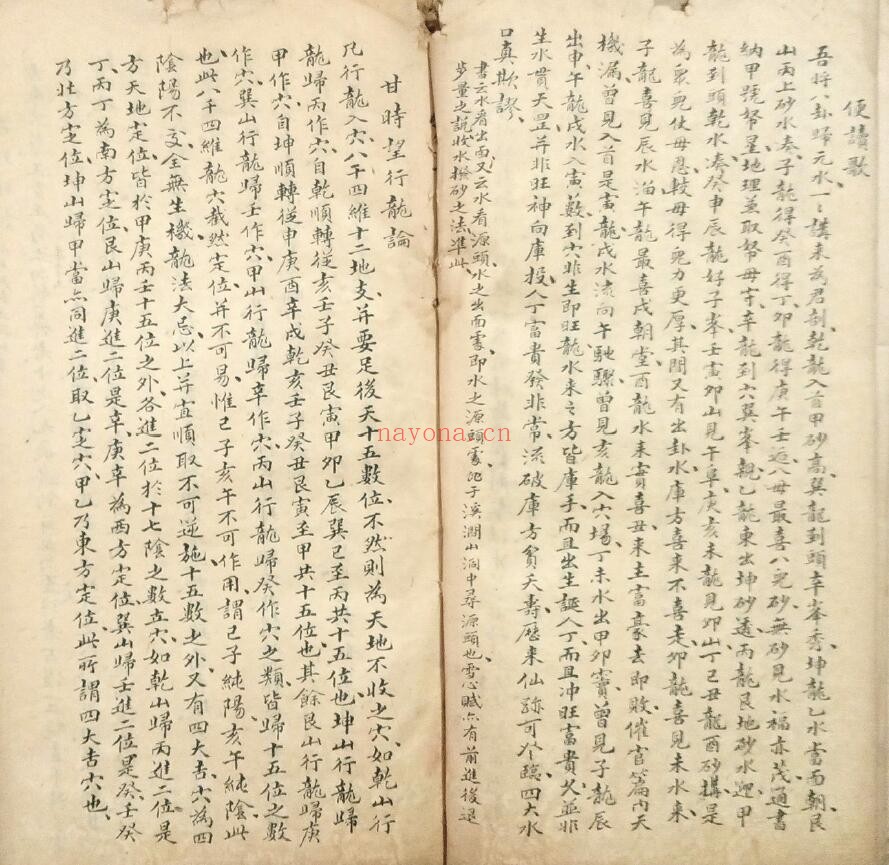 便讀歌
吾將八卦歸元水一〻講來為君剖乾龍入首甲砂高巽龍到頭辛峯秀坤龍乙水當面朝艮
山丙上砂水奏子龍得癸酉得丁卯龍得庚午壬逅八毋最喜八兒砂無砂見水福亦茂通書
納甲號帑星地理並取帑毋守辛龍到穴巽峯親乙龍東出坤砂透丙龍艮地砂水迎甲
龍到頭乾水湊癸申辰龍好子峯壬寅卯山見午阜庚亥未龍見卯山丁巳丑龍酉砂搆是
為眾兒仗毋恩較毋得兒力更厚其間又有出卦水庫方喜來不喜走卯龍喜見未水來
子龍喜見辰水溜午龍最喜戌朝堂酉龍水來實喜丑來主富豪去即敗催官篇內天
機漏曾見入首是寅龍戌水流向午馳驟曾見亥龍入穴場丁未水出甲卯竇曾見子龍辰
出申午龍戌水入寅數到穴非生即旺龍水來之方皆庫手而且出生誕人丁而且冲旺富貴久並非
生水貫天罡并非旺神向庫投人丁富貴發非常流破庫方貧夭壽歷來仙跡可登臨四大水
口真欺謬
書云水看出面又云水看源頭水之出面處即水之源頭處非于溪澗山洞中尋源頭也雪心賦亦有前進後退
步量之說收水撥砂之法準此
甘時望行龍論
凡行龍入穴八干四維十二地支并要足後天十五數位不然則為天地不收之穴如乾山行
龍歸丙作穴自乾順轉從亥壬子癸丑艮寅甲卯乙辰巽巳至丙共十五位也坤山行龍歸
甲作穴自坤順轉從申庚酉辛戌乾亥壬子癸丑艮寅至甲共十五位也其餘艮山行龍歸庚
作穴巽山行龍歸壬作穴甲山行龍歸辛作穴丙山行龍歸癸作穴之類皆歸十五位之數
也此八干四維龍穴截然定位并不可易惟巳子亥午不可作用謂巳子純陽亥午純陰此
陰陽不交全無生機龍法大忌以上并宜順取不可逆施十五數之外又有四大吉穴為四
方天地定位皆於甲庚丙壬十五位之外各進二位於十七陰之數立穴如乾山歸丙進二位是
丁丙丁為南方定位艮山歸庚進二位是辛庚辛為西方定位巽山歸壬進二位是癸壬癸
乃北方定位坤山歸甲當亦同進二位取乙定穴甲乙乃東方定位此所謂四大吉穴也
nayona.cn